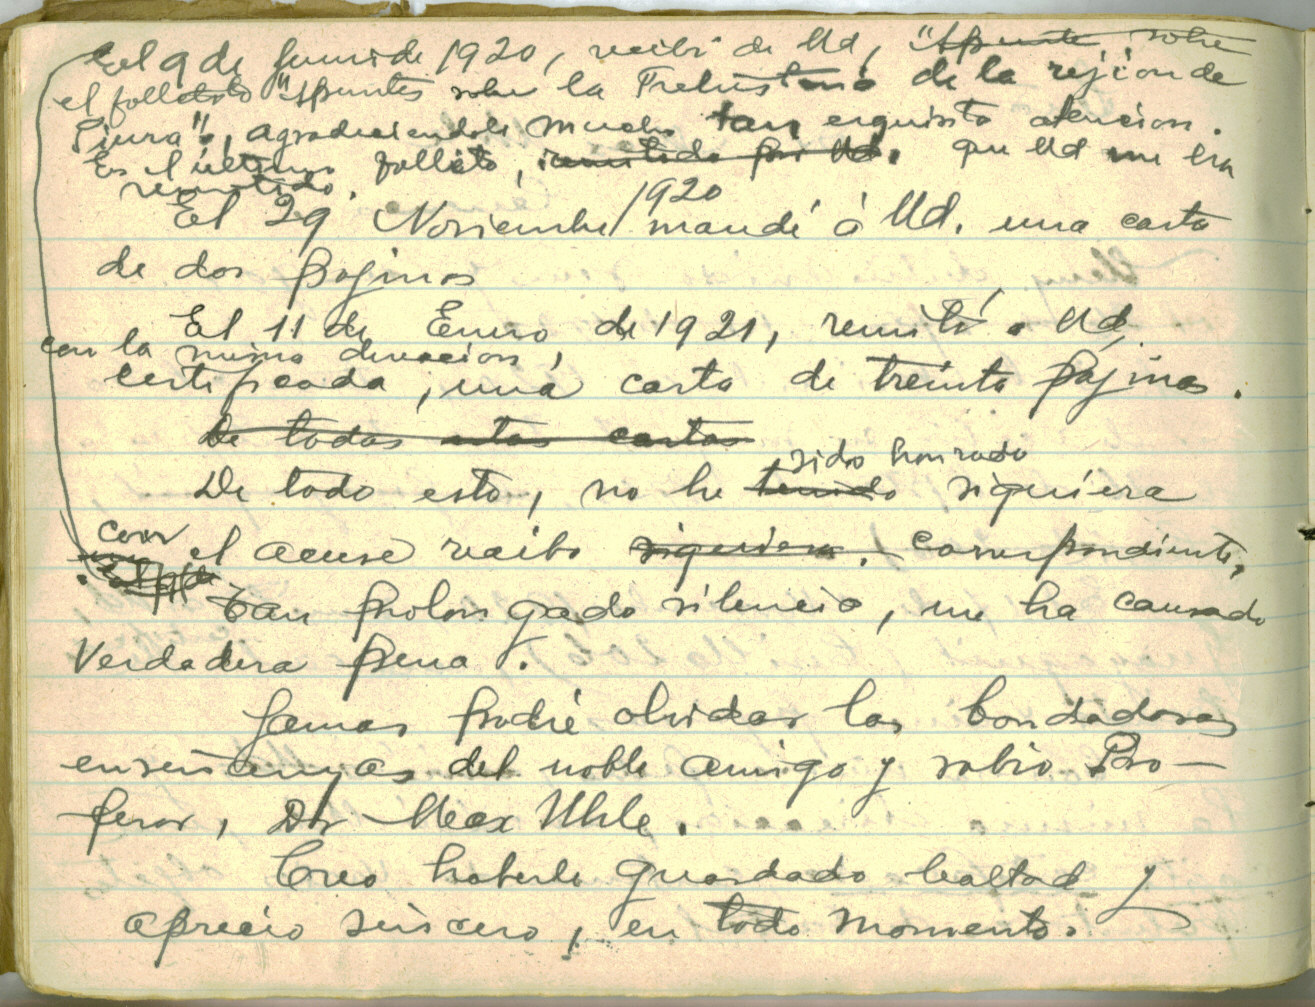 El 9 de Junio de 1920, recibí de Ud, "Apunte, sobre
el folleto "Apuntes sobre la Prehistoria de la rejion de
Piura", agradeciendole mucho tan exquisita atencion.
Es el ultimo folleto, remitido por Ud. que Ud me ha
remitido.
1920
El 29 Noviembre mandé á Ud. una carta
de dos pajinas
El 11 de Enero de 1921, remití a Ud,
con la misma direccion,
certificada, una carta de treinta pájinas.
De todas estas cartas
sido honrado
De todo esto, no he tenido siquiera
con el acuse recibo siquiera. correspondiente,
Tan prolongado silencio, me ha causado
Verdadera pena.
Jamas podré olvidar las bondadosas
enseñanzas del noble amigo y sabio Pro-
fesor, Dr Max Uhle.
Creo haberle guardado lealtad y
aprecio sincero, en todo momento.